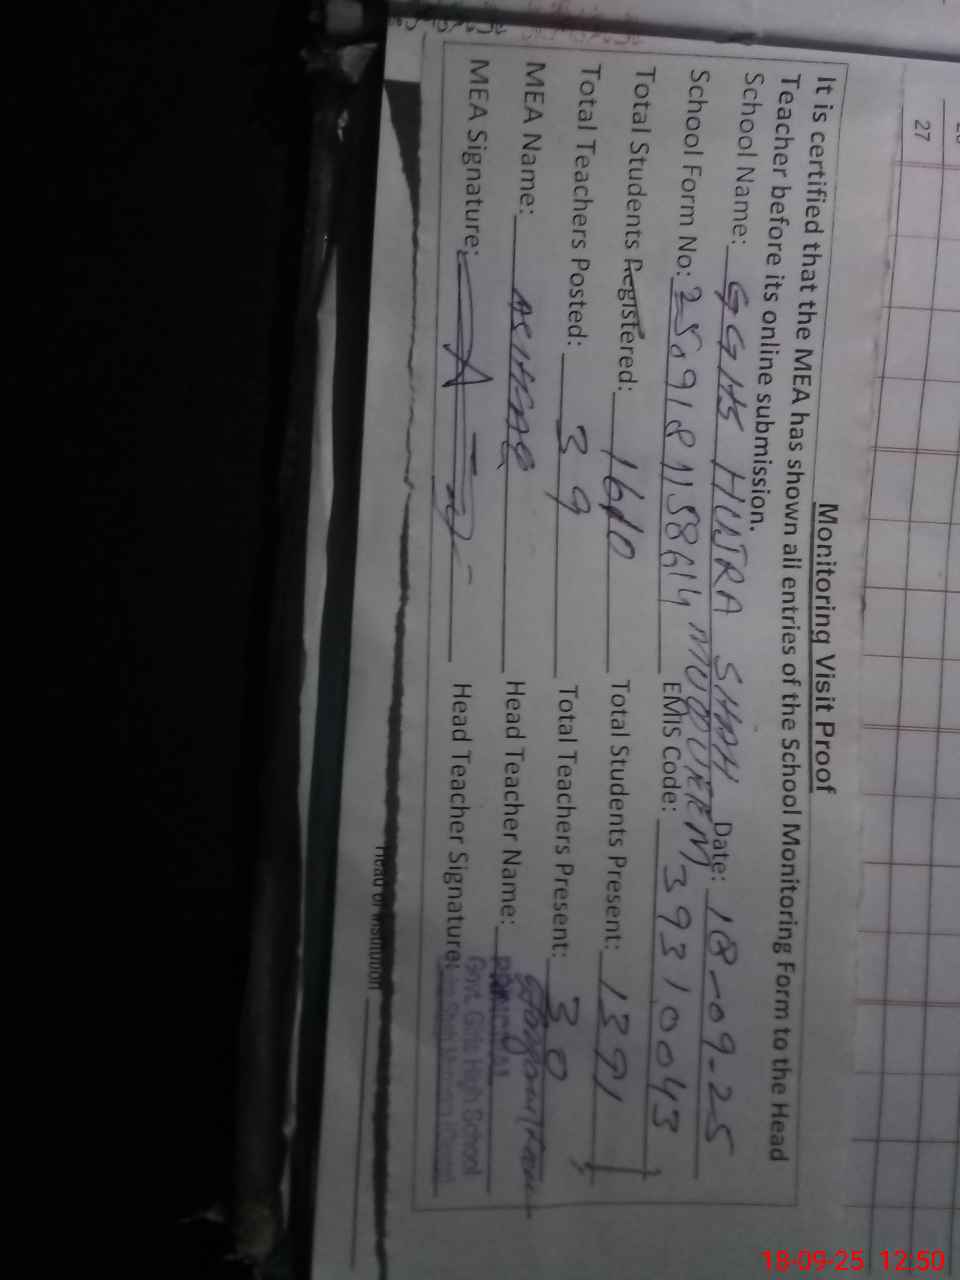 27
Monitoring Visit Proof
It is certified that the MEA has shown all entries of the School Monitoring Form to the Head
Teacher before its online submission.
School Name: GGHS HUJRA SHAH MUQUEEM Date: 18-09-25
School Form No: 2509181158614 EMIS Code: 39310043
Total Students Registered: 1610 Total Students Present: 1391
Total Teachers Posted: 39 Total Teachers Present: 30
MEA Name: Head Teacher Name:
PRINCIPAL
MEA Signature: Head Teacher Signature:
Govt. Girls High School
Head of Institution
18-09-25 12:50